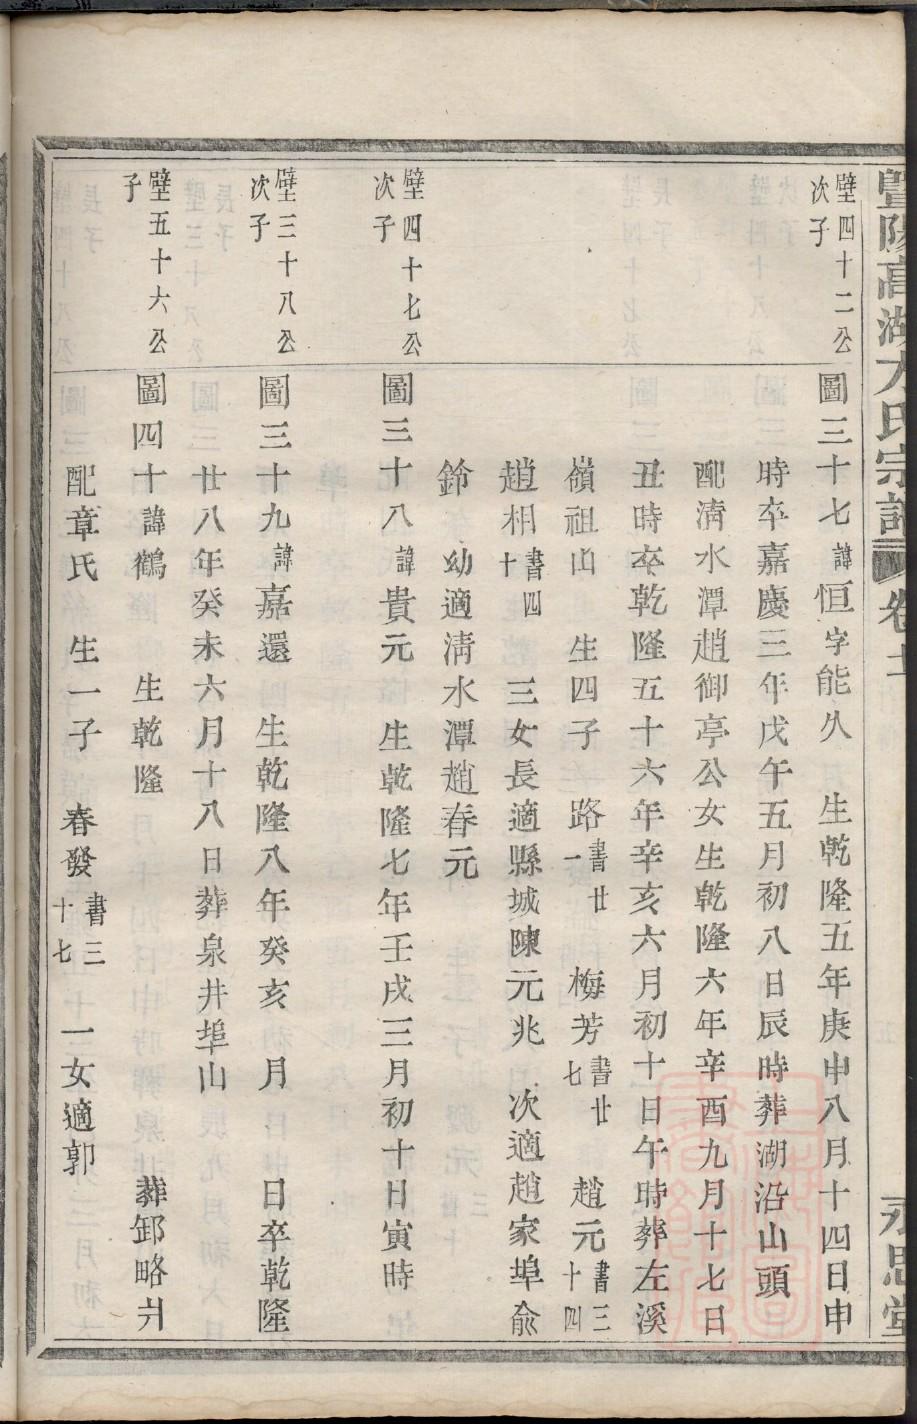 暨陽高湖方氏宗譜 卷十 永思堂
璧四十二公
次子
圖三十七諱恒字能久 生乾隆五年庚申八月十四日申
時卒嘉慶三年戊午五月初八日辰時葬湖沿山頭
配清水潭趙御亭公女生乾隆六年辛酉九月十七日
丑時卒乾隆五十六年辛亥六月初十日午時葬左溪
嶺祖山 生四子 路書廿一 梅芳書廿七 趙元書三十四
趙相書四十 三女長適縣城陳元兆 次適趙家埠俞
鈴 幼適清水潭趙春元
璧四十七公
次子
圖三十八諱貴元 生乾隆七年壬戌三月初十日寅時
璧三十八公
次子
圖三十九諱嘉還 生乾隆八年癸亥 月 日卒乾隆
廿八年癸未六月十八日葬泉井埠山
璧五十六公
子
圖四十諱鶴 生乾隆 葬邹略爿
配章氏 生一子 春發書三十七 一女適郭